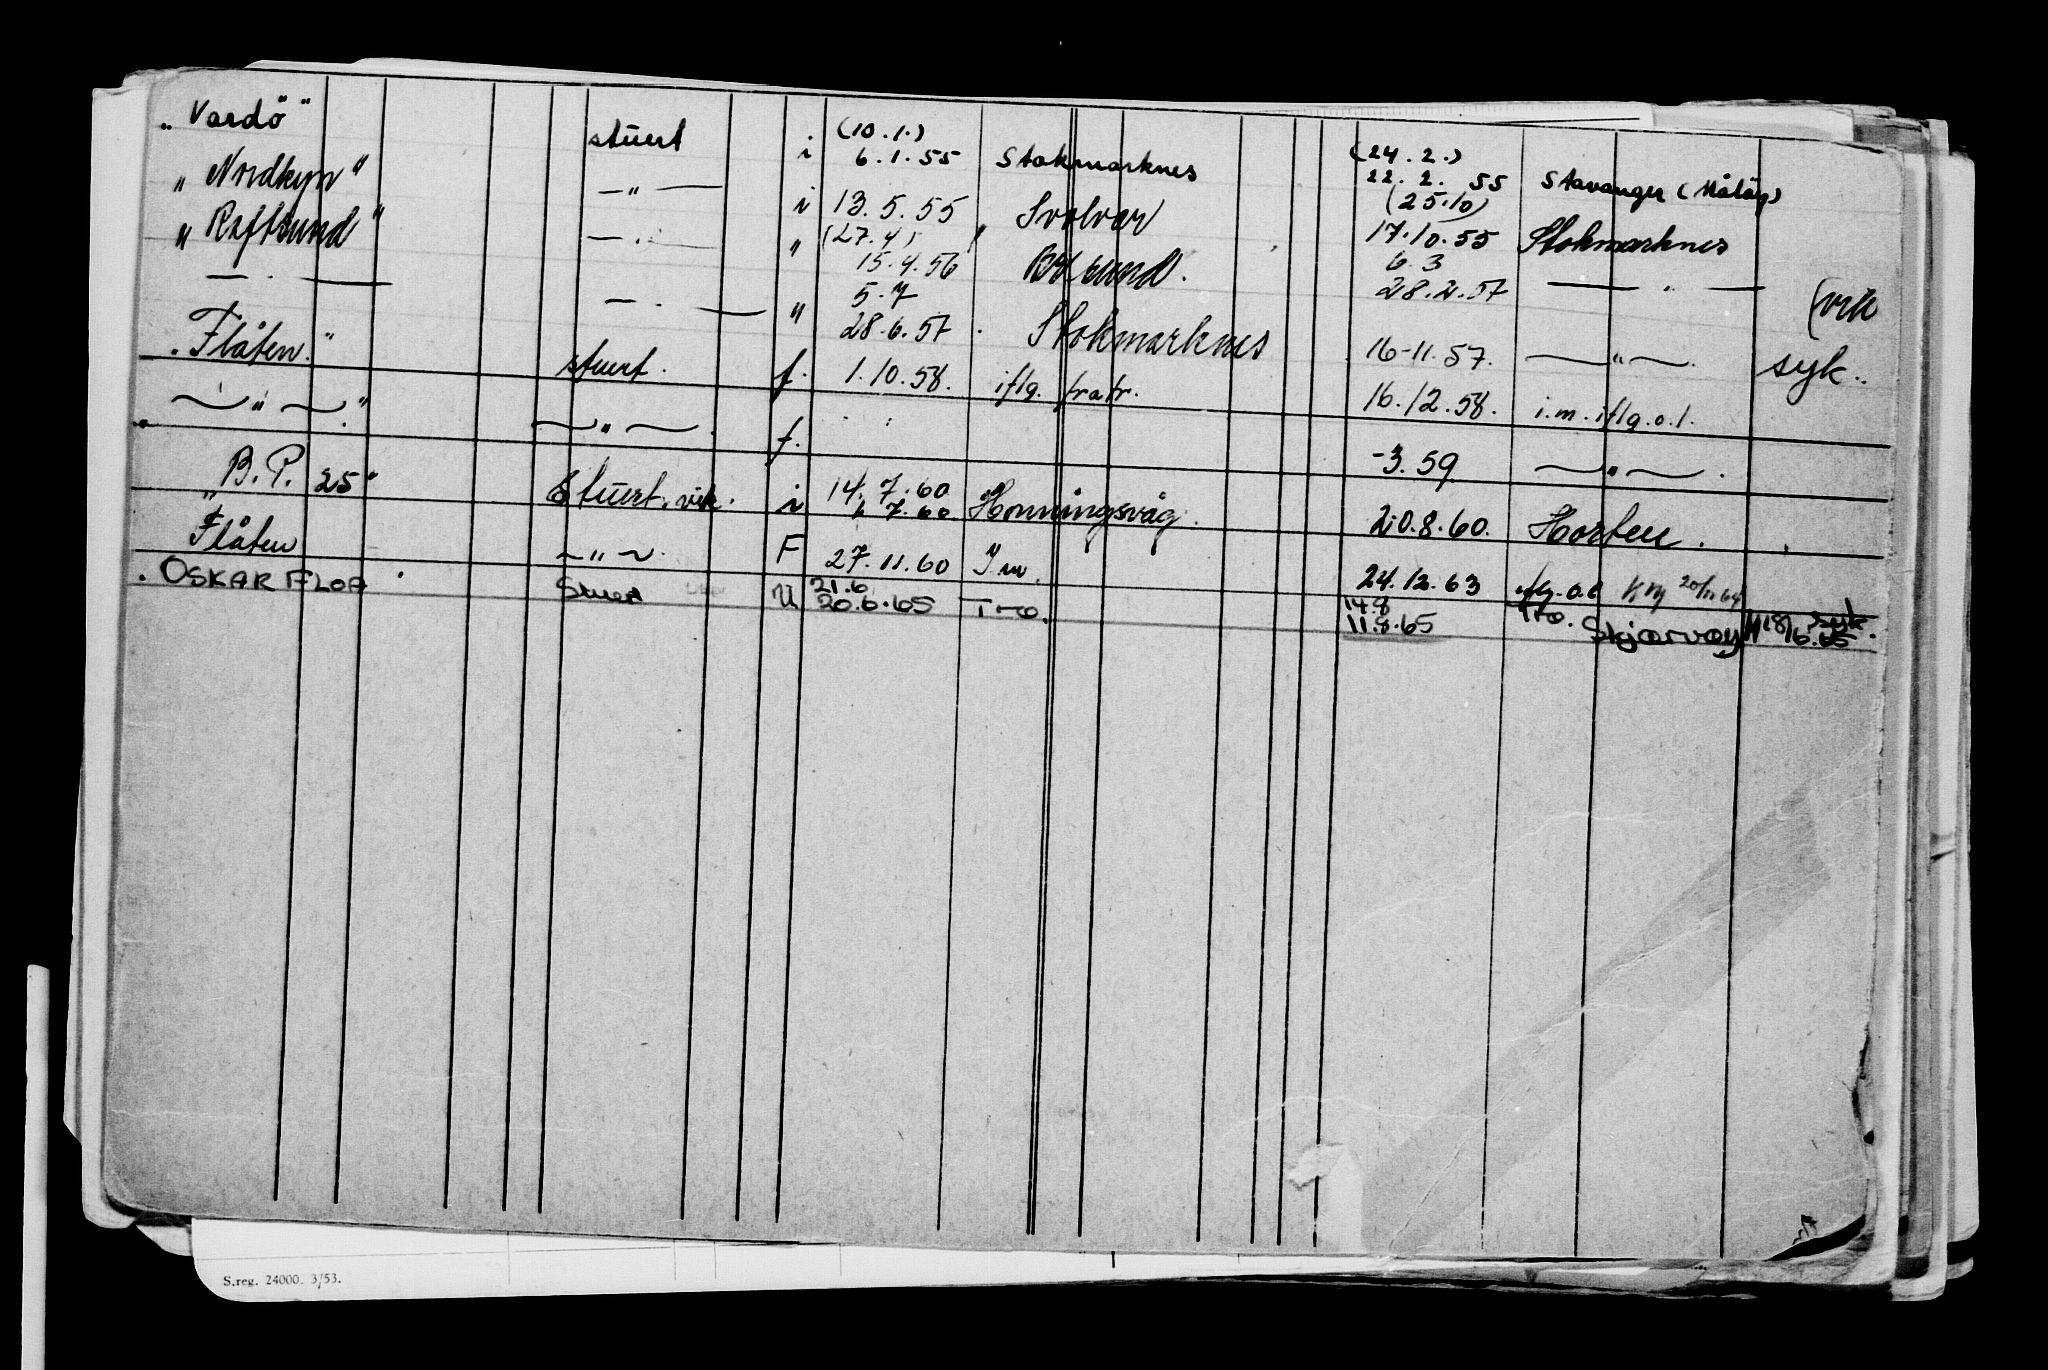 „Vardö" stuert i (10.1.) 6.1.55 Stokmarknes (24.2.) 22.2.55 Stavanger (Måløy)
„Nordkyn" —"— i 13.5.55 Svolvær (25.10) 17.10.55 Stokmarknes
„Raftsund" —"— " (27.4) 15.4.56 6.3 28.2.57 —"—
—"— —"— " 5.7 28.6.57 Stokmarknes 16-11.57. —"— (vik syk.
„Flåten." stuert. f. 1.10.58. iflg. fratr. 16.12.58. i.m. iflg.o.l.
—"— —"— f. -3.59 —"—
„B.P. 25" Stuert.vik. i 14.7.60 7.60 Honningsvåg. 20.8.60. Horten.
„Flåten —"— F 27.11.60 24.12.63 iflg.o.l
OSKAR FLOA Stuert U 21.6 20.6.65 Tro. 14.8 11.8.65 Tro. Skjærvøy
S.reg. 24000. 3/53.